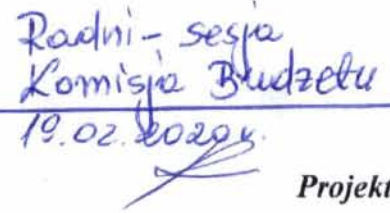 Radni - sesja
Komisja Budżetu
19.02.2020r.
Projekt